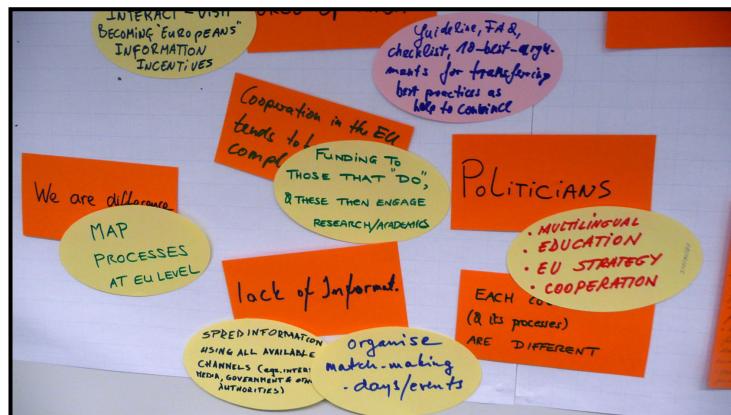 INTERACT - VISIT
BECOMING "EUROPEANS"
INFORMATION
INCENTIVES
Guideline, FAQ,
checklist, 10-best-argu-
ments for transferring
best practices as
help to convince
Cooperation in the EU
tends to
FUNDING TO
THOSE THAT "DO",
& THESE THEN ENGAGE
RESEARCH/ACADEMICS
We are
MAP
PROCESSES
AT EU LEVEL
POLITICIANS
• MULTILINGUAL
• EDUCATION
• EU STRATEGY
• COOPERATION
lack of Informat.
EACH
(& its processes)
ARE DIFFERENT
SPRED INFORMATION
USING ALL AVAILABLE
CHANNELS
MEDIA, GOVERNMENT &
AUTHORITIES)
organise
match-making
-days/events